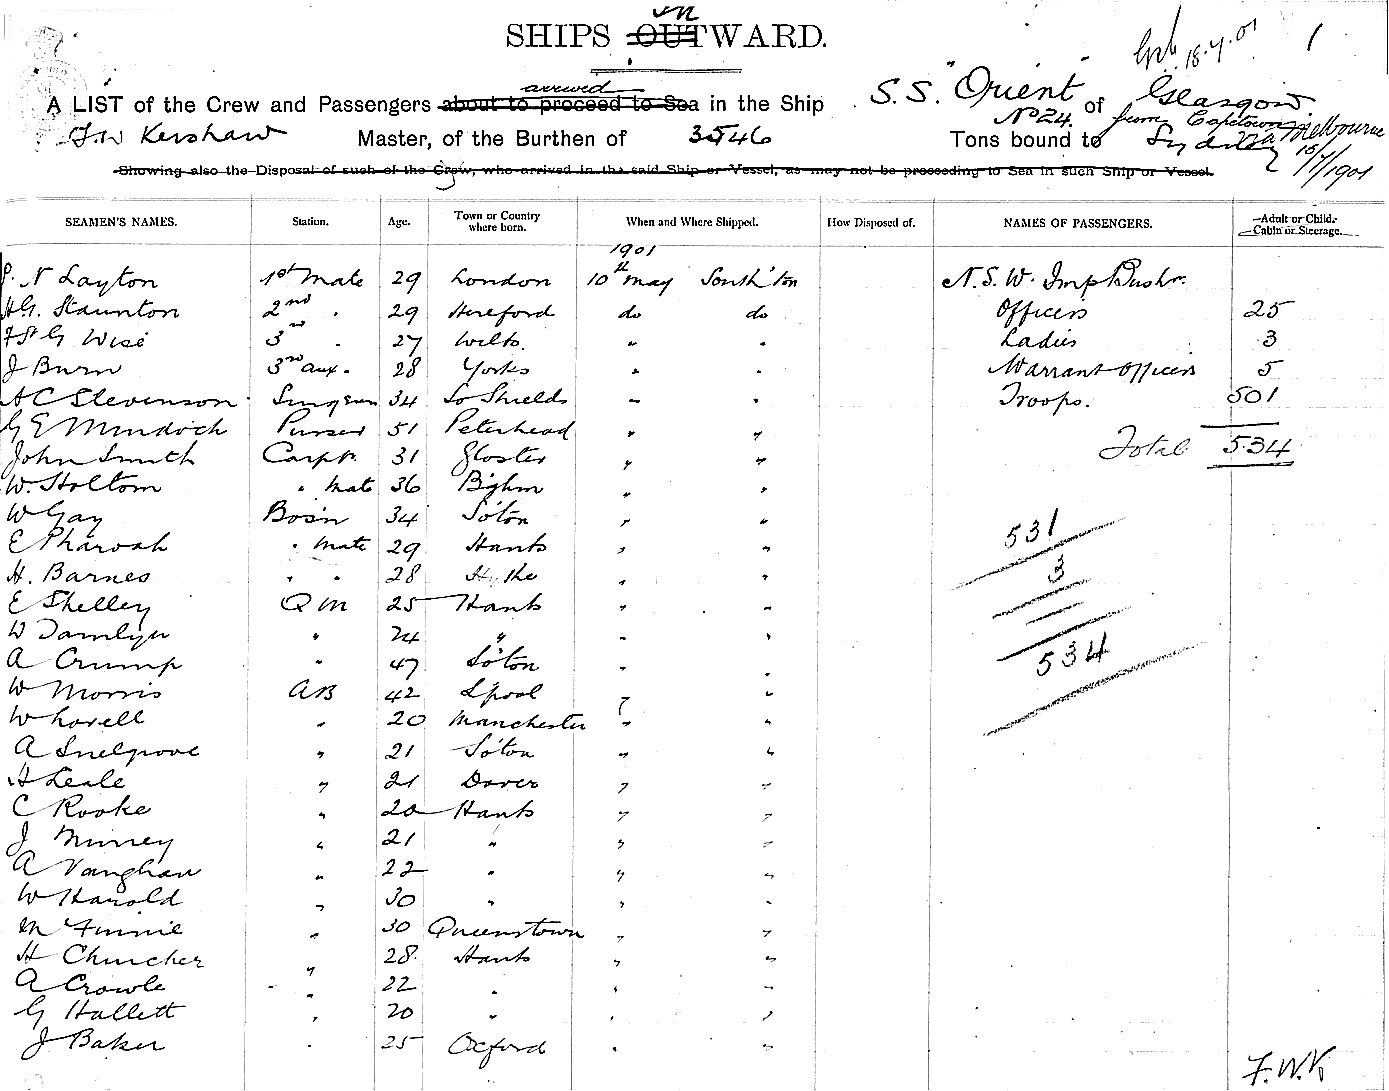 in
SHIPS OUTWARD.
18.7.01
1
arrived
A LIST of the Crew and Passengers about to proceed to Sea in the Ship S.S. "Orient" of Glasgow
No 24. from Capetown
F.W Kershaw Master, of the Burthen of 3546 Tons bound to Sydney Via Melbourne
15/7/1901
Showing also the Disposal of such of the Crew, who arrived in the said Ship or Vessel, as may not be proceeding to Sea in such Ship or Vessel.
SEAMEN'S NAMES. Station. Age. Town or Country where born. When and Where Shipped. How Disposed of. NAMES OF PASSENGERS. Adult or Child. Cabin or Steerage.
1901
P. N Layton 1st Mate 29 London 10th May South'ton N. S. W. Imp Bushr.
H.G. Staunton 2nd " 29 Hereford do do Officers 25
F St G Wise 3rd " 27 Wilts. " " Ladies 3
J Burn 3rd aux. 28 Yorks " " Warrant officers 5
A C Stevenson Surgeon 34 So Shields " " Troops. 501
G E Murdoch Purser 51 Peterhead " "
Total 534
John Smith Carptr. 31 Gloster " "
W. Holtom " Mate 36 B'ghm " "
W Gay Bosn 34 So'ton " "
531
E Pharoah " Mate 29 Hants " "
H. Barnes " " 28 Hythe " "
3
E Shelley Q M 25 Hants " "
W Damlyn " 24 " " "
A Crump " 47 So'ton " "
534
W Morris AB 42 L'pool " "
W Lovell " 20 Manchester " "
A Snelgrove " 21 So'ton " "
H Leale " 21 Dover " "
C Rooke " 20 Hants " "
J Murrey " 21 " " "
A Vaughan " 22 " " "
W Harold " 30 " " "
M Finnie " 30 Queenstown " "
H Churcher " 28 Hants " "
A Crowle " 22 " " "
G Hallett " 20 " " "
J Baker " 25 Oxford " "
F.W.K